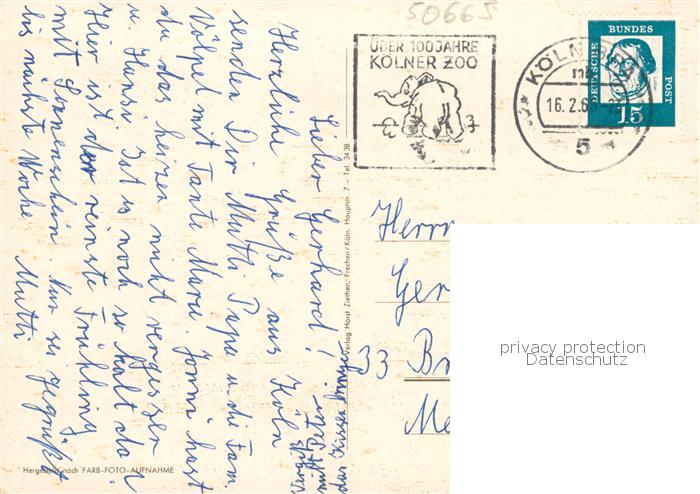 50665
ÜBER 100 JAHRE
KÖLNER ZOO
KÖLN
16.2.6
5
DEUTSCHE
BUNDES
POST
15
Lieber Gerhard!
Herzliche Grüße aus Köln
senden Dir Mutti Papa u. die Fam.
Völpel mit Tante Marie. Jonni hast
du das heizen nicht vergessen
u. Hansi. Ist es noch so kalt da
Hier ist der reinste Frühling
mit Sonnenschein. Nur sei gegrüßt
bis nächste Woche Mutti
mit Peter
das Kissen
Verlag Horst Ziethen, Frechen/Köln, Hauptstr. 7 – Tel. 3438
Hergestellt nach FARB-FOTO-AUFNAHME
Herrn
Ger
33 Br
Me
privacy protection
Datenschutz